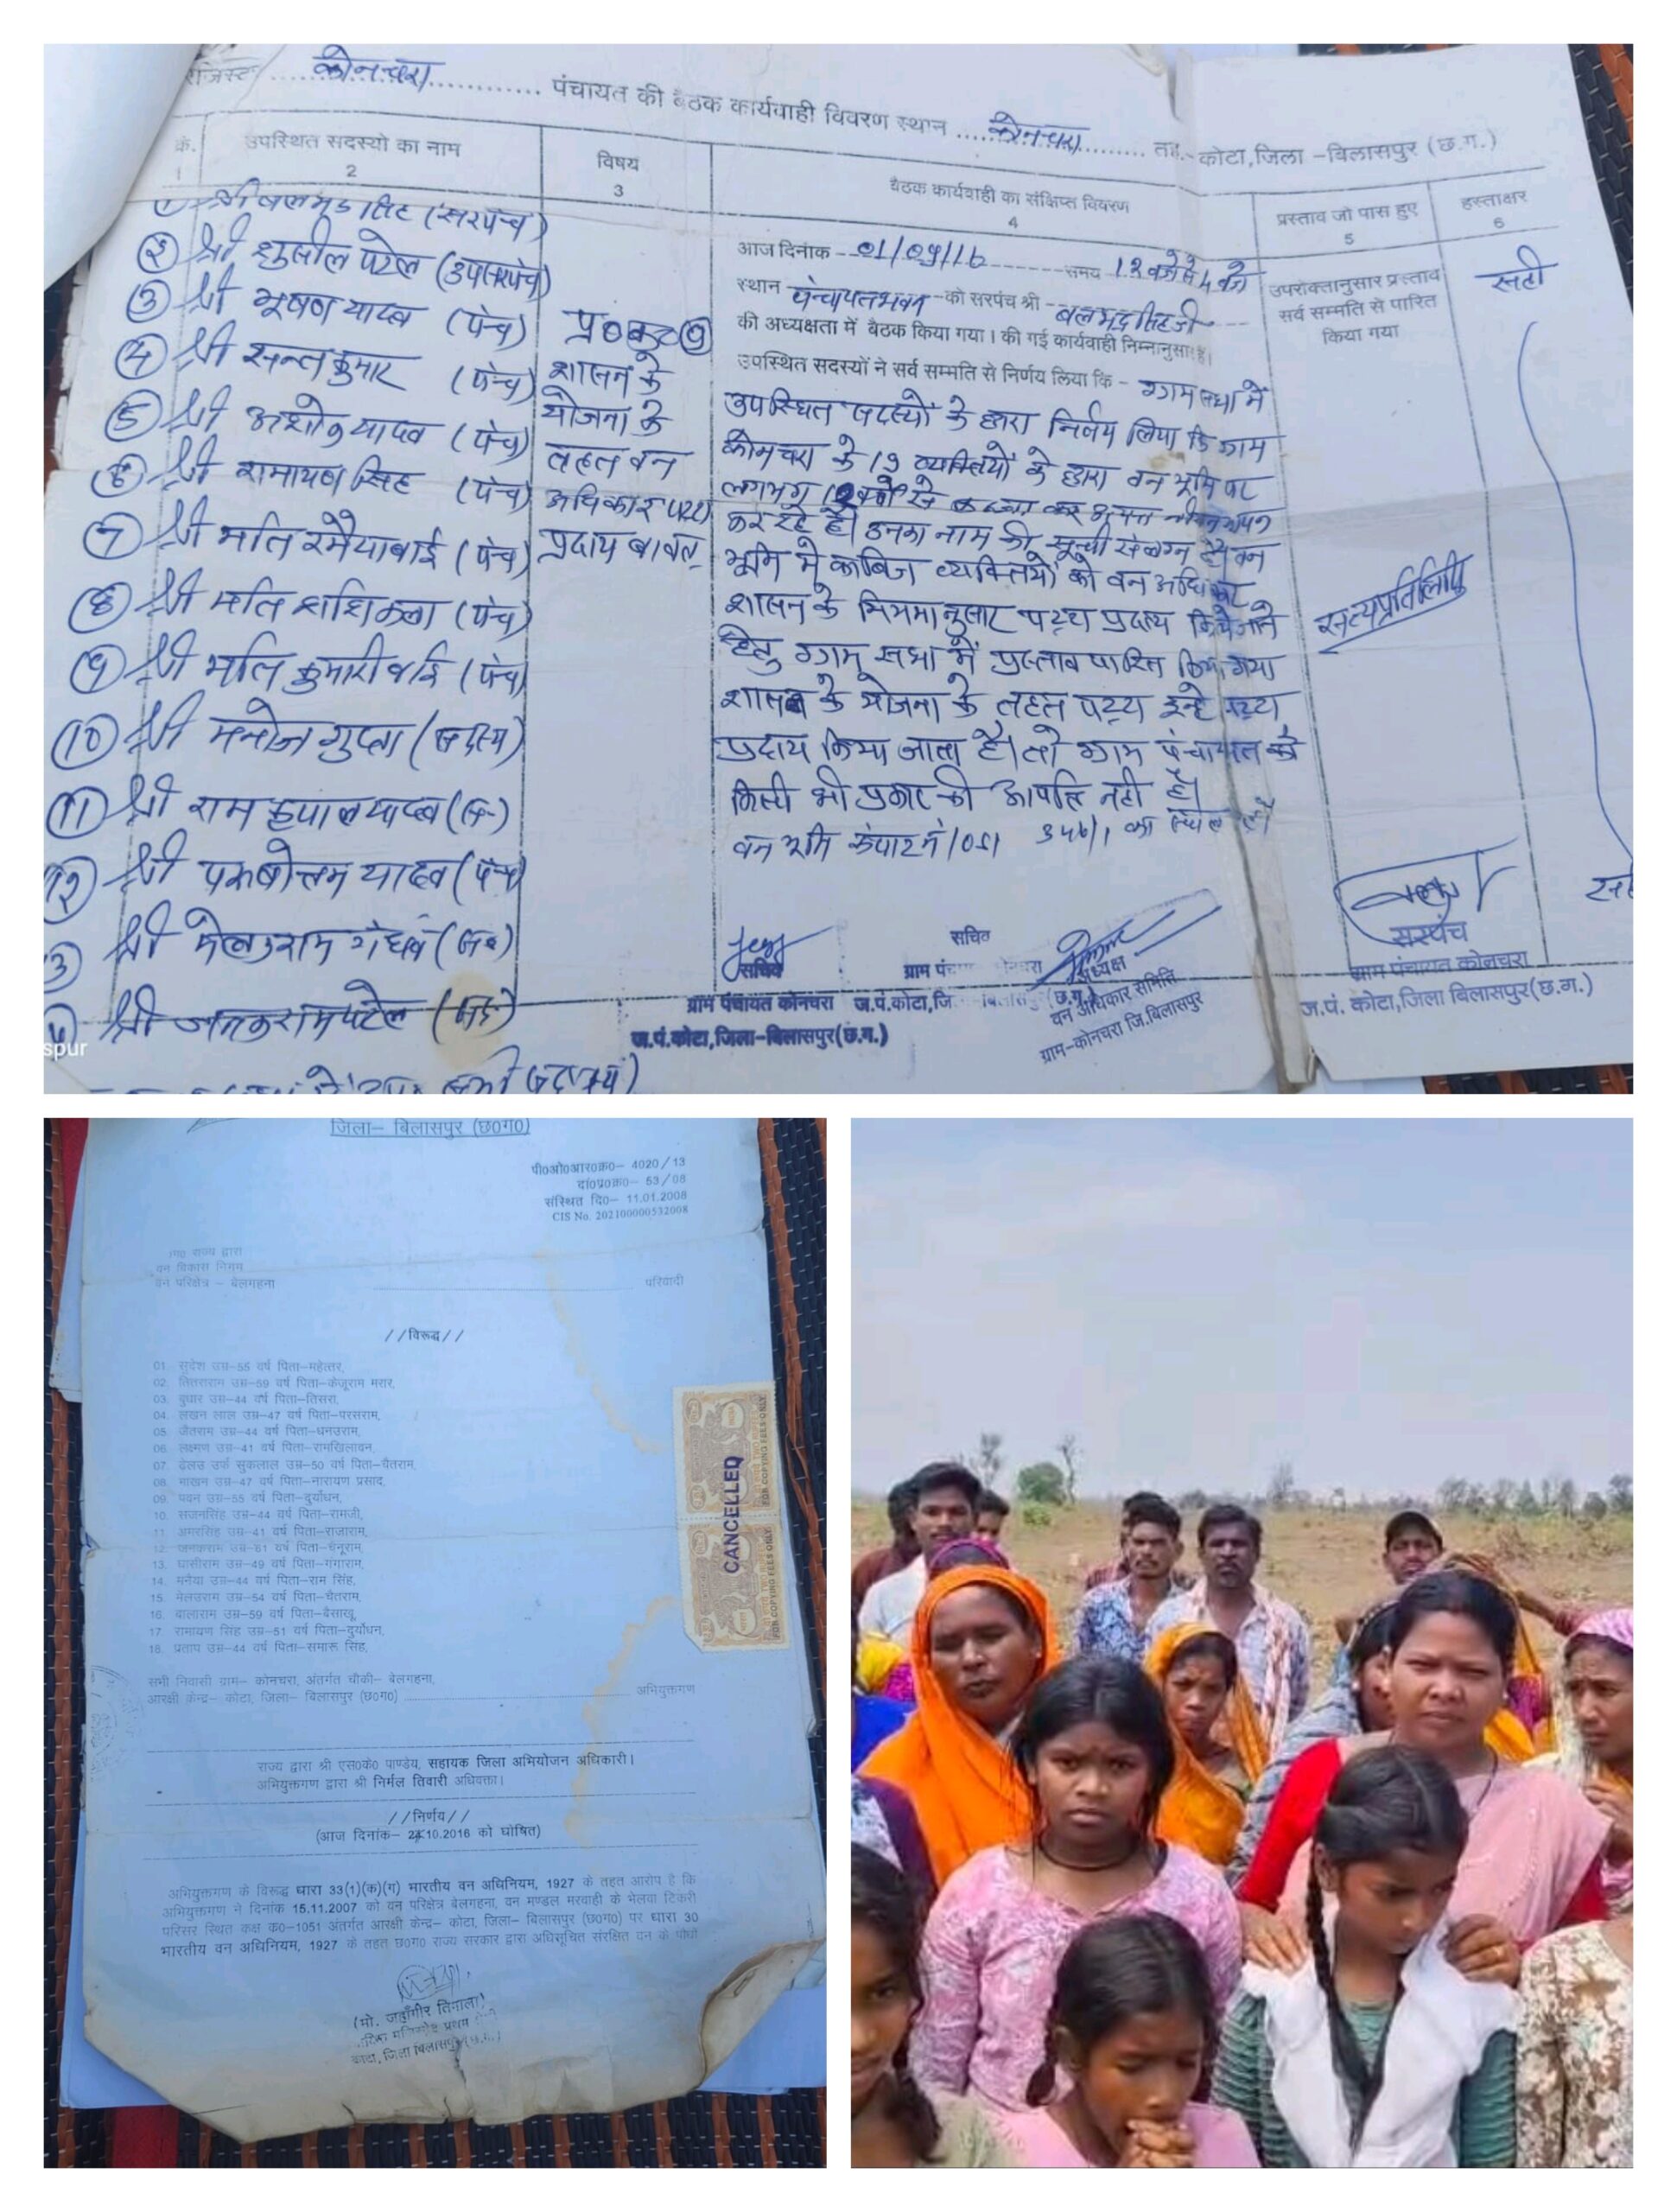 कोनचरा पंचायत की बैठक कार्यवाही विवरण स्थान कोनचरा तह.-कोटा,जिला -बिलासपुर (छ.ग.)
क्र. उपस्थित सदस्यो का नाम विषय बैठक कार्यवाही का संक्षिप्त विवरण प्रस्ताव जो पास हुए हस्ताक्षर
1 2 3 4 5 6
(सरपंच)
② श्री सुशील पटेल (उपसरपंच)
③ श्री भूषण यादव (पंच)
④ श्री सन्तकुमार (पंच)
⑤ श्री अशोक यादव (पंच)
⑥ श्री रामायण सिंह (पंच)
⑦ श्री मति रमैयाबाई (पंच)
⑧ श्री मति शशिकला (पंच)
⑨ श्री मति कुमारी बाई (पंच)
⑩ श्री मनोज गुप्ता (सदस्य)
⑪ श्री राम कृपाल यादव
श्री यादव
श्री
श्री पटेल
शासन के
योजना के
तहत वन
अधिकार पट्टा
प्रदाय बाबत्
आज दिनांक 01/09/16 समय 12 बजे से 4 बजे
स्थान पंचायत भवन को सरपंच श्री बलभद्र सिंह जी
की अध्यक्षता में बैठक किया गया। की गई कार्यवाही निम्नानुसार है।
उपस्थित सदस्यों ने सर्व सम्मति से निर्णय लिया कि - ग्राम सभा में
उपस्थित सदस्यों के द्वारा निर्णय लिया कि ग्राम
कोनचरा के 19 व्यक्तियों के द्वारा वन भूमि पर
लगभग 12 वर्षो से कब्जा कर
कर रहे है। उनका नाम की सूची संलग्न है। वन
भूमि में काबिज व्यक्तियों को वन अधिकार
शासन के नियमानुसार पट्टा प्रदाय किये जाने
हेतु ग्राम सभा में प्रस्ताव पारित किया गया
शासन के योजना के तहत पट्टा इन्हे पट्टा
प्रदाय किया जाता है। तो ग्राम पंचायत को
किसी भी प्रकार की आपत्ति नही है।
वन भूमि 1051 346/1 का
उपरोक्तानुसार प्रस्ताव
सर्व सम्मति से पारित
किया गया
सही
सत्यप्रतिलिपि
सचिव
ग्राम पंचायत कोनचरा
ज.पं.कोटा,जिला-बिलासपुर(छ.ग.)
सचिव
अध्यक्ष
वन अधिकार समिति
ग्राम-कोनचरा जि.बिलासपुर
सरपंच
ग्राम पंचायत कोनचरा
ज.पं. कोटा,जिला बिलासपुर(छ.ग.)
spur
जिला- बिलासपुर (छ0ग0)
पी0ओ0आर0क्र0- 4020/13
दा0प्र0क्र0- 53/08
संस्थित दि0- 11.01.2008
CIS No. 202100000532008
राज्य द्वारा
वन विकास निगम
वन परिक्षेत्र - बेलगहना परिवादी
//विरूद्ध//
01. सुदेश उम्र-55 वर्ष पिता-महेत्तर,
02. तितराराम उम्र-59 वर्ष पिता-केजूराम मरार,
03. बुधार उम्र-44 वर्ष पिता-तिसरा,
04. लखन लाल उम्र-47 वर्ष पिता-परसराम,
05. जैतराम उम्र-44 वर्ष पिता-धनउराम,
06. लक्ष्मण उम्र-41 वर्ष पिता-रामखिलावन,
07. ढेलउ उर्फ सुकलाल उम्र-50 वर्ष पिता-चैतराम,
08. माखन उम्र-47 वर्ष पिता-नारायण प्रसाद,
09. पवन उम्र-55 वर्ष पिता-दुर्योधन,
10. सजनसिंह उम्र-44 वर्ष पिता-रामजी,
11. अमरसिंह उम्र-41 वर्ष पिता-राजाराम,
12. जनकराम उम्र-61 वर्ष पिता-चैनूराम,
13. घासीराम उम्र-49 वर्ष पिता-गंगाराम,
14. मनैया उम्र-44 वर्ष पिता-राम सिंह,
15. मेलउराम उम्र-54 वर्ष पिता-चैतराम,
16. बालाराम उम्र-59 वर्ष पिता-बैसाखू,
17. रामायण सिंह उम्र-51 वर्ष पिता-दुर्योधन,
18. प्रताप उम्र-44 वर्ष पिता-समारू सिंह,
सभी निवासी ग्राम- कोनचरा, अंतर्गत चौकी- बेलगहना,
आरक्षी केन्द्र- कोटा, जिला- बिलासपुर (छ0ग0) अभियुक्तगण
CANCELLED
FOR COPYING FEES ONLY
FOR COPYING FEES ONLY
राज्य द्वारा श्री एस0के0 पाण्डेय, सहायक जिला अभियोजन अधिकारी।
अभियुक्तगण द्वारा श्री निर्मल तिवारी अधिवक्ता।
//निर्णय//
(आज दिनांक- 24.10.2016 को घोषित)
अभियुक्तगण के विरूद्ध धारा 33(1)(क)(ग) भारतीय वन अधिनियम, 1927 के तहत आरोप है कि
अभियुक्तगण ने दिनांक 15.11.2007 को वन परिक्षेत्र बेलगहना, वन मण्डल मरवाही के भेलवा टिकरी
परिसर स्थित कक्ष क्र0-1051 अंतर्गत आरक्षी केन्द्र- कोटा, जिला- बिलासपुर (छ0ग0) पर धारा 30
भारतीय वन अधिनियम, 1927 के तहत छ0ग0 राज्य सरकार द्वारा अधिसूचित संरक्षित वन के पौधों
(मो. जहाँगीर तिगाला)
प्रथम
कोटा, जिला बिलासपुर(छ.ग.)